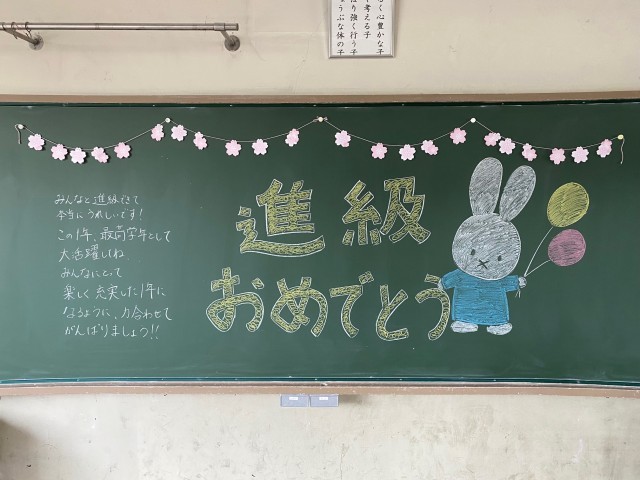 く心豊かな子
考える子
り強く行う子
うぶな体の子
みんなと進級できて
本当にうれしいです!
この1年、最高学年として
大活躍してね
みんなにとって
楽しく充実した1年に
なるように、力合わせて
がんばりましょう!!
進級
おめでとう